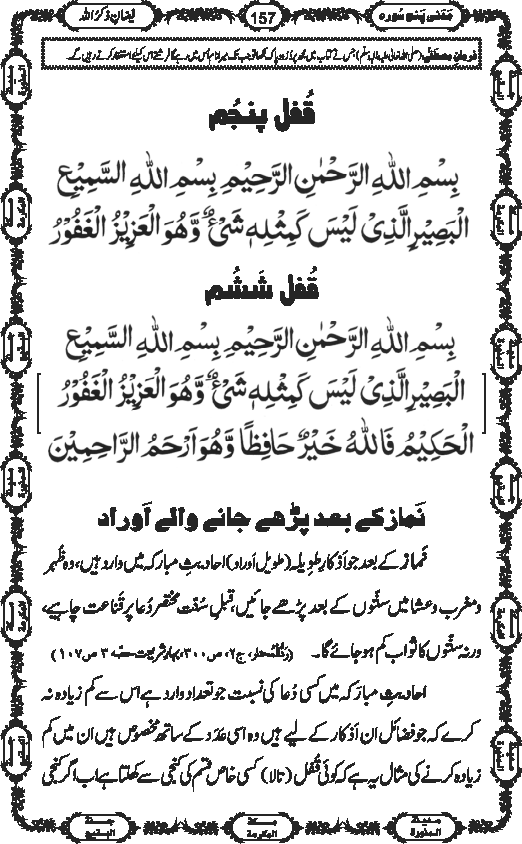 مَدَنی پنج سورہ
157
فیضانِ ذکرُ اللہ
فرمانِ مصطفٰے (صلی اللہ تعالیٰ علیہ والہ وسلّم) جس نے کتاب میں مجھ پر دُرُودِ پاک لکھا تو جب تک میرا نام اُس میں رہے گا فرشتے اس کیلئے استغفار کرتے رہیں گے۔
قُفلِ پنجُم
بِسْمِ اللهِ الرَّحْمٰنِ الرَّحِيْمِ بِسْمِ اللهِ السَّمِيْعِ
الْبَصِيْرِ الَّذِىْ لَيْسَ كَمِثْلِهٖ شَىْءٌ وَّهُوَ الْعَزِيْزُ الْغَفُوْرُ
قُفلِ شَشُم
بِسْمِ اللهِ الرَّحْمٰنِ الرَّحِيْمِ بِسْمِ اللهِ السَّمِيْعِ
الْبَصِيْرِ الَّذِىْ لَيْسَ كَمِثْلِهٖ شَىْءٌ وَّهُوَ الْعَزِيْزُ الْغَفُوْرُ
الْحَكِيْمُ فَاللهُ خَيْرٌ حَافِظًا وَّهُوَ اَرْحَمُ الرَّاحِمِيْنَ
نَماز کے بعد پڑھے جانے والے اَوراد
نَماز کے بعد جو اَذکارِ طویلہ (طویل اوراد) احادیثِ مبارکہ میں وارد ہیں، وہ ظُہر
و مغرب و عشا میں سنّتوں کے بعد پڑھے جائیں، قبلِ سُنّت مختصر دُعا پر قَناعت چاہیے،
ورنہ سنّتوں کا ثواب کم ہو جائے گا۔ (رَدُّالْمُحتار، ج۲، ص۳۰۰، بہارِ شریعت حصّہ ۳ ص۱۰۷)
احادیثِ مبارَکہ میں کسی دُعا کی نسبت جو تعداد وارد ہے اس سے کم زیادہ نہ
کرے کہ جو فضائل ان اَذکار کے لیے ہیں وہ اسی عَدَد کے ساتھ مخصوص ہیں ان میں کم
زیادہ کرنے کی مثال یہ ہے کہ کوئی قُفْل (تالا) کسی خاص قسم کی کُنجی سے کھلتا ہے اب اگر کنجی
مدینۃ المنورۃ
مکۃ المکرمۃ
جنۃ البقیع